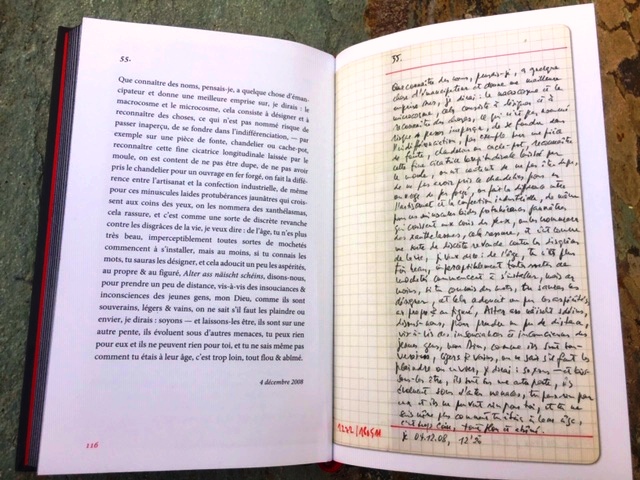 55.
Que connaître des noms, pensais-je, a quelque chose d'éman-
cipateur et donne une meilleure emprise sur, je dirais : le
macrocosme et le microcosme, cela consiste à désigner et à
reconnaître des choses, ce qui n'est pas nommé risque de
passer inaperçu, de se fondre dans l'indifférenciation, — par
exemple sur une pièce de fonte, chandelier ou cache-pot,
reconnaître cette fine cicatrice longitudinale laissée par le
moule, on est content de ne pas être dupe, de ne pas avoir
pris le chandelier pour un ouvrage en fer forgé, on fait la diffé-
rence entre l'artisanat et la confection industrielle, de même
pour ces minuscules laides protubérances jaunâtres qui crois-
sent aux coins des yeux, on les nommera des xanthélasmas,
cela rassure, et c'est comme une sorte de discrète revanche
contre les disgrâces de la vie, je veux dire : de l'âge, tu n'es plus
très beau, imperceptiblement toutes sortes de mochetés
commencent à s'installer, mais au moins, si tu connais les
mots, tu sauras les désigner, et cela adoucit un peu les aspérités,
au propre & au figuré, Alter ass näischt schéins, disons-nous,
pour prendre un peu de distance, vis-à-vis des insouciances &
inconsciences des jeunes gens, mon Dieu, comme ils sont
souverains, légers & vains, on ne sait s'il faut les plaindre ou
envier, je dirais : soyons — et laissons-les être, ils sont sur une
autre pente, ils évoluent sous d'autres menaces, tu peux rien
pour eux et ils ne peuvent rien pour toi, et tu ne sais même pas
comment tu étais à leur âge, c'est trop loin, tout flou & abîmé.
4 décembre 2008
116
55.
Que connaître des noms, pensais-je, a quelque
chose d'émancipateur et donne une meilleure
emprise sur, je dirais : le macrocosme et le
microcosme, cela consiste à désigner et à
reconnaître des choses, ce qui n'est pas nommé
risque de passer inaperçu, de se fondre dans
l'indifférenciation, par exemple sur une pièce
de fonte, chandelier ou cache-pot, reconnaître
cette fine cicatrice longitudinale laissée par
le moule, on est content de ne pas être dupe,
de ne pas avoir pris le chandelier pour un
ouvrage de fer forgé, on fait la différence entre
l'artisanat et la confection industrielle, de même
pour ces minuscules laides protubérances jaunâtres
qui croissent aux coins des yeux, on les nommera
des xanthélasmas, cela rassure, et c'est comme
une sorte de discrète revanche contre les disgrâces
de la vie, je veux dire : de l'âge, tu n'es plus
très beau, imperceptiblement toutes sortes de
mochetés commencent à s'installer, mais au
moins, si tu connais les mots, tu sauras les
désigner, et cela adoucit un peu les aspérités,
au propre & au figuré, Alter ass näischt schéins,
disons-nous, pour prendre un peu de distance,
vis-à-vis des insouciances & inconsciences des
jeunes gens, mon Dieu, comme ils sont sou-
verains, légers & vains, on ne sait s'il faut les
plaindre ou envier, je dirais : soyons — et lais-
sons-les être, ils sont sur une autre pente, ils
évoluent sous d'autres menaces, tu peux rien pour
eux et ils ne peuvent rien pour toi, et tu ne
sais même plus comment tu étais à leur âge,
c'est trop loin, tout flou & abîmé.
04.12.08, 12h